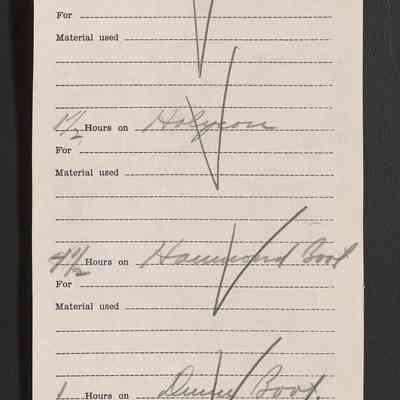 For
Material used
1½ Hours on
For
Material used
4½ Hours on Hammond Boot
For
Material used
1 Hours on Boot.